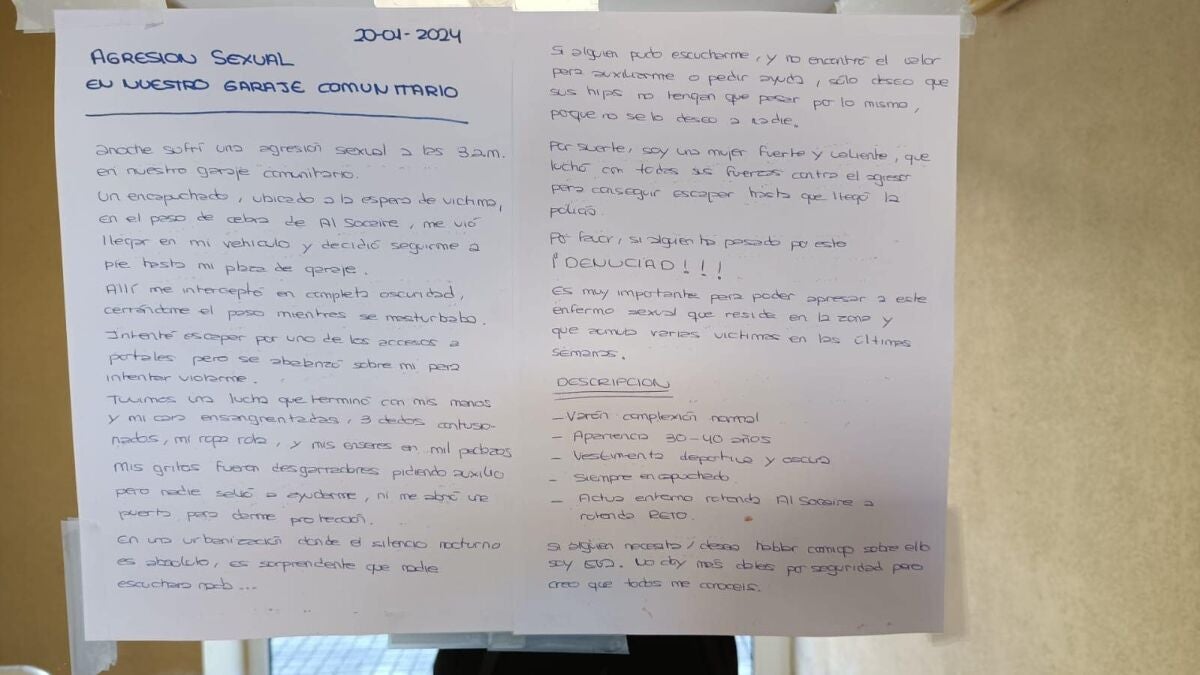 20-01-2024
AGRESION SEXUAL
EN NUESTRO GARAJE COMUNITARIO
anoche sufrí una agresión sexual a las 3 a.m.
en nuestro garaje comunitario.
Un encapuchado, ubicado a la espera de victima,
en el paso de cebra de Al Socaire, me vió
llegar en mi vehiculo y decidió seguirme a
pie hasta mi plaza de garaje.
Allí me interceptó en completa oscuridad,
cerrándome el paso mientras se masturbaba.
Intenté escapar por uno de los accesos a
portales pero se abalanzó sobre mi para
intentar violarme.
Tuvimos una lucha que terminó con mis manos
y mi cara ensangrentadas, 3 dedos contusio-
nados, mi ropa rota, y mis enseres en mil pedazos
Mis gritos fueron desgarradores pidiendo auxilio
pero nadie salió a ayudarme, ni me abrió una
puerta para darme protección.
En una urbanización donde el silencio nocturno
es absoluto, es sorprendente que nadie
escuchara nada...
Si alguien pudo escucharme, y no encontró el valor
para auxiliarme o pedir ayuda, sólo deseo que
sus hijas no tengan que pasar por lo mismo,
porque no se lo deseo a nadie.
Por suerte, soy una mujer fuerte y valiente, que
luchó con todas sus fuerzas contra el agresor
para conseguir escapar hasta que llegó la
policía.
Por favor, si alguien ha pasado por esto
¡DENUCIAD!!!
Es muy importante para poder apresar a este
enfermo sexual que reside en la zona y
que acumula varias victimas en las últimas
semanas.
DESCRIPCION
- Varón complexión normal
- Apariencia 30-40 años
- Vestimenta deportiva y oscura
- Siempre encapuchado.
- Actua entorno rotonda Al Socaire a
rotonda RETO.
Si alguien necesita / desea hablar conmigo sobre ello
soy EVA. No doy más datos por seguridad pero
creo que todos me conoceis.